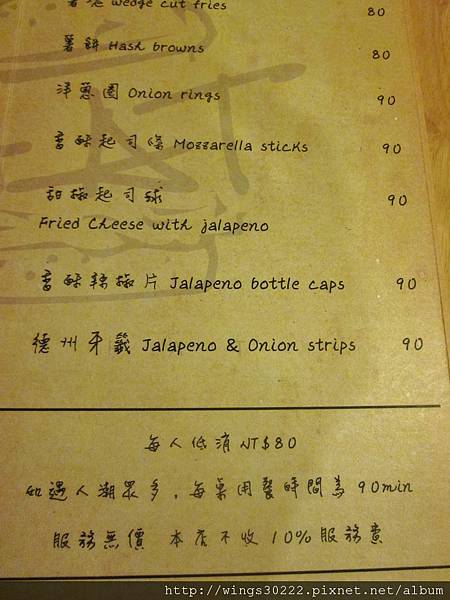 wedge cut fries 80
薯餅 Hash browns 80
洋蔥圈 Onion rings 90
香酥起司條 Mozzarella sticks 90
甜椒起司球 90
Fried Cheese with jalapeno
香酥辣椒片 Jalapeno bottle caps 90
德州牙籤 Jalapeno & Onion strips 90
每人低消 NT$80
如遇人潮眾多，每桌用餐時間為 90min
服務無價 本店不收 10% 服務費
http://wings30222.pixnet.net/album